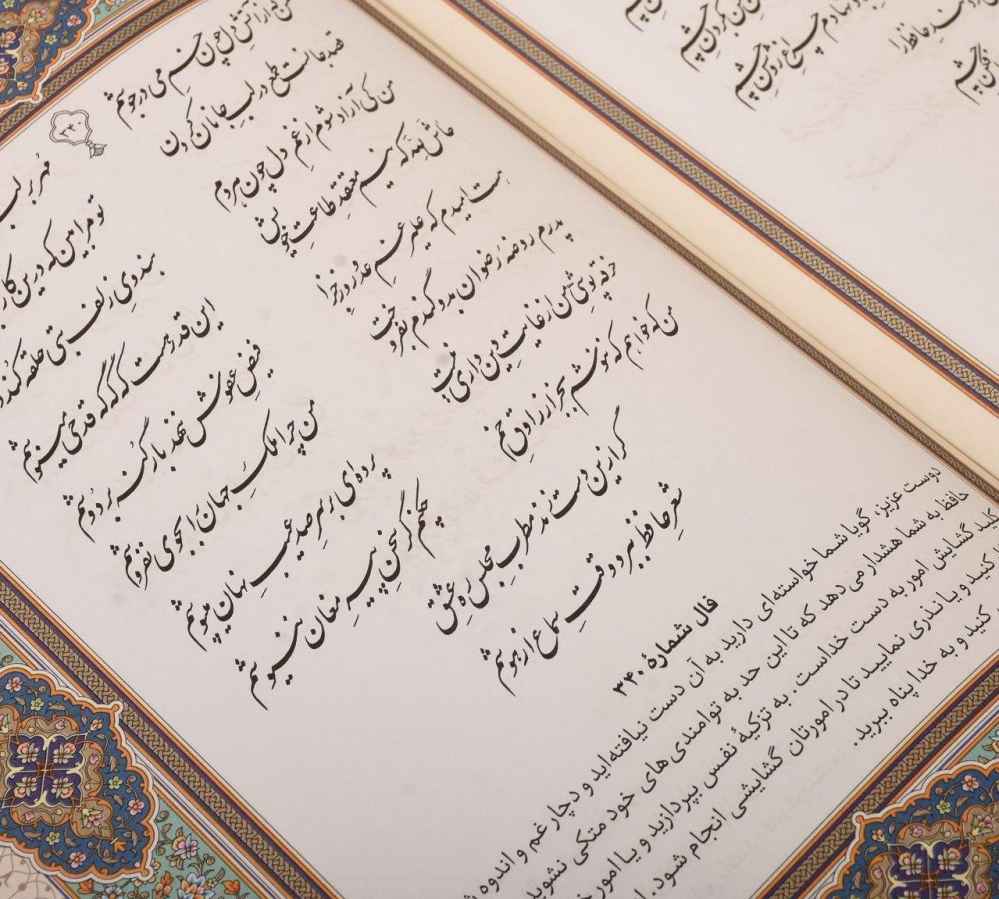 ۳۴۰
از آتش دل چون خم می در جوشم
مهر بر لب
قصد جانست طمع در لب جانان کردن
تو مرا بین که در این کار
من کی آزاد شوم از غم دل چون هر دم
هندوی زلف بتی حلقه کند
حاش لله که نیم معتقد طاعت خویش
این قدر هست که گه گه قدحی مینوشم
هست امیدم که علیرغم عدو روز جزا
فیض عفوش ننهد بار گنه بر دوشم
پدرم روضه رضوان بدو گندم بفروخت
من چرا ملک جهان را بجوی نفروشم
خرقه پوشی من از غایت دین داری نیست
پرده‌ای بر سر صد عیب نهان میپوشم
من که خواهم که ننوشم بجز از راوق خم
چکنم گر سخن پیر مغان ننیوشم
گر ازین دست زند مطرب مجلس ره عشق
شعر حافظ ببرد وقت سماع از هوشم
فال شمارهٔ ۳۴۰
دوست عزیز، گویا شما خواسته‌ای دارید به آن دست نیافته‌اید و دچار غم و اندوه
حافظ به شما هشدار می دهد که تا این حد به توامندی های خود متکی نشوید
کلید گشایش امور به دست خداست. به تزکیهٔ نفس بپردازید و یا امور
کنید و یا نذری نمایید تا در امورتان گشایشی انجام شود.
کنید و به خدا پناه ببرید.